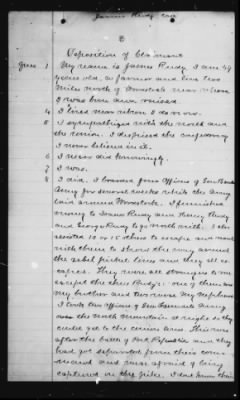 James Rudy
8
Deposition of Claimant
Ques. 1 My name is James Rudy. I am 49
years old, a farmer and live two
miles north of
I was born and raised
4 I lived near where I do now.
5 I sympathized with the north and
the union. I despised the confederacy
I never believed in it.
6 I never did knowingly.
7 I was.
8 I did. I boarded four officers of Gen Banks
Army for several weeks while the army
laid around Woodstock. I furnished
money to Isaac Rudy and Henry Rudy
and George Rudy to go north with. I also
assisted 12 or 15 others to escape and went
with them to show the way around
the rebel picket lines and they all es-
caped. They were all strangers to me
except the three Rudy's: one of them was
my brother and two were my nephews
I took two officers of Gen Fremonts Army
over the North Mountain at night so they
could get to the union lines. This was
after the battle of Port Republic and they
had got separated from their com-
mand and were afraid of being
captured on the pike. I